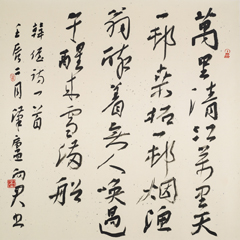 萬里清江萬里天
一邨桑柘一邨烟漁
翁醉着無人喚過
午醒来雪満船
韓偓詩一首
壬辰二月